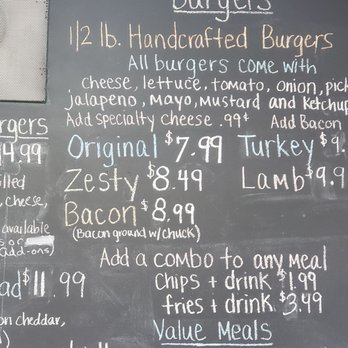 Burgers
1/2 lb. Handcrafted Burgers
All burgers come with
cheese, lettuce, tomato, onion, pick
jalapeno, Mayo, Mustard and Ketchup
Add specialty cheese .99¢ Add Bacon
Original $7.99 Turkey $9.
Zesty $8.49 Lamb $9.9
Bacon $8.99
(Bacon ground w/chuck)
Add a combo to any meal
Chips + drink $1.99
fries + drink $3.49
Value Meals
rgers
4.99
cheese,
available
add-ons)
ad $11.99
on cheddar,